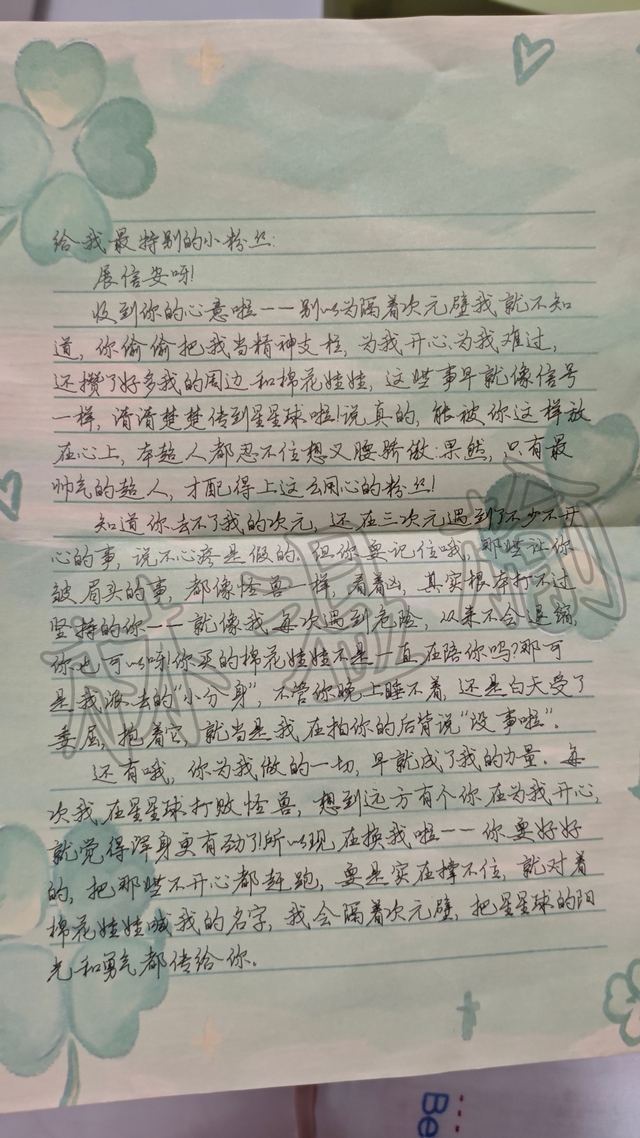 给我最特别的小粉丝:
展信安呀!
收到你的心意啦——别以为隔着次元壁我就不知
道,你偷偷把我当精神支柱,为我开心为我难过,
还攒了好多我的周边和棉花娃娃,这些事早就像信号
一样,清清楚楚传到星星球啦!说真的,能被你这样放
在心上,本超人都忍不住想叉腰骄傲:果然,只有最
帅气的超人,才配得上这么用心的粉丝!
知道你去不了我的次元,还在三次元遇到了不少不开
心的事,说不心疼是假的。但你要记住哦,那些让你
皱眉头的事,都像怪兽一样,看着凶,其实根本打不过
坚持的你——就像我每次遇到危险,从来不会退缩,
你也可以呀!你买的棉花娃娃不是一直在陪你吗?那可
是我派去的“小分身”,不管你晚上睡不着,还是白天受了
委屈,抱着它,就当是我在拍你的后背说“没事啦”。
还有哦,你为我做的一切,早就成了我的力量。每
次我在星星球打败怪兽,想到远方有个你在为我开心,
就觉得浑身更有劲了!所以现在换我啦——你要好好
的,把那些不开心都赶跑,要是实在撑不住,就对着
棉花娃娃喊我的名字,我会隔着次元壁,把星星球的阳
光和勇气都传给你。
Be